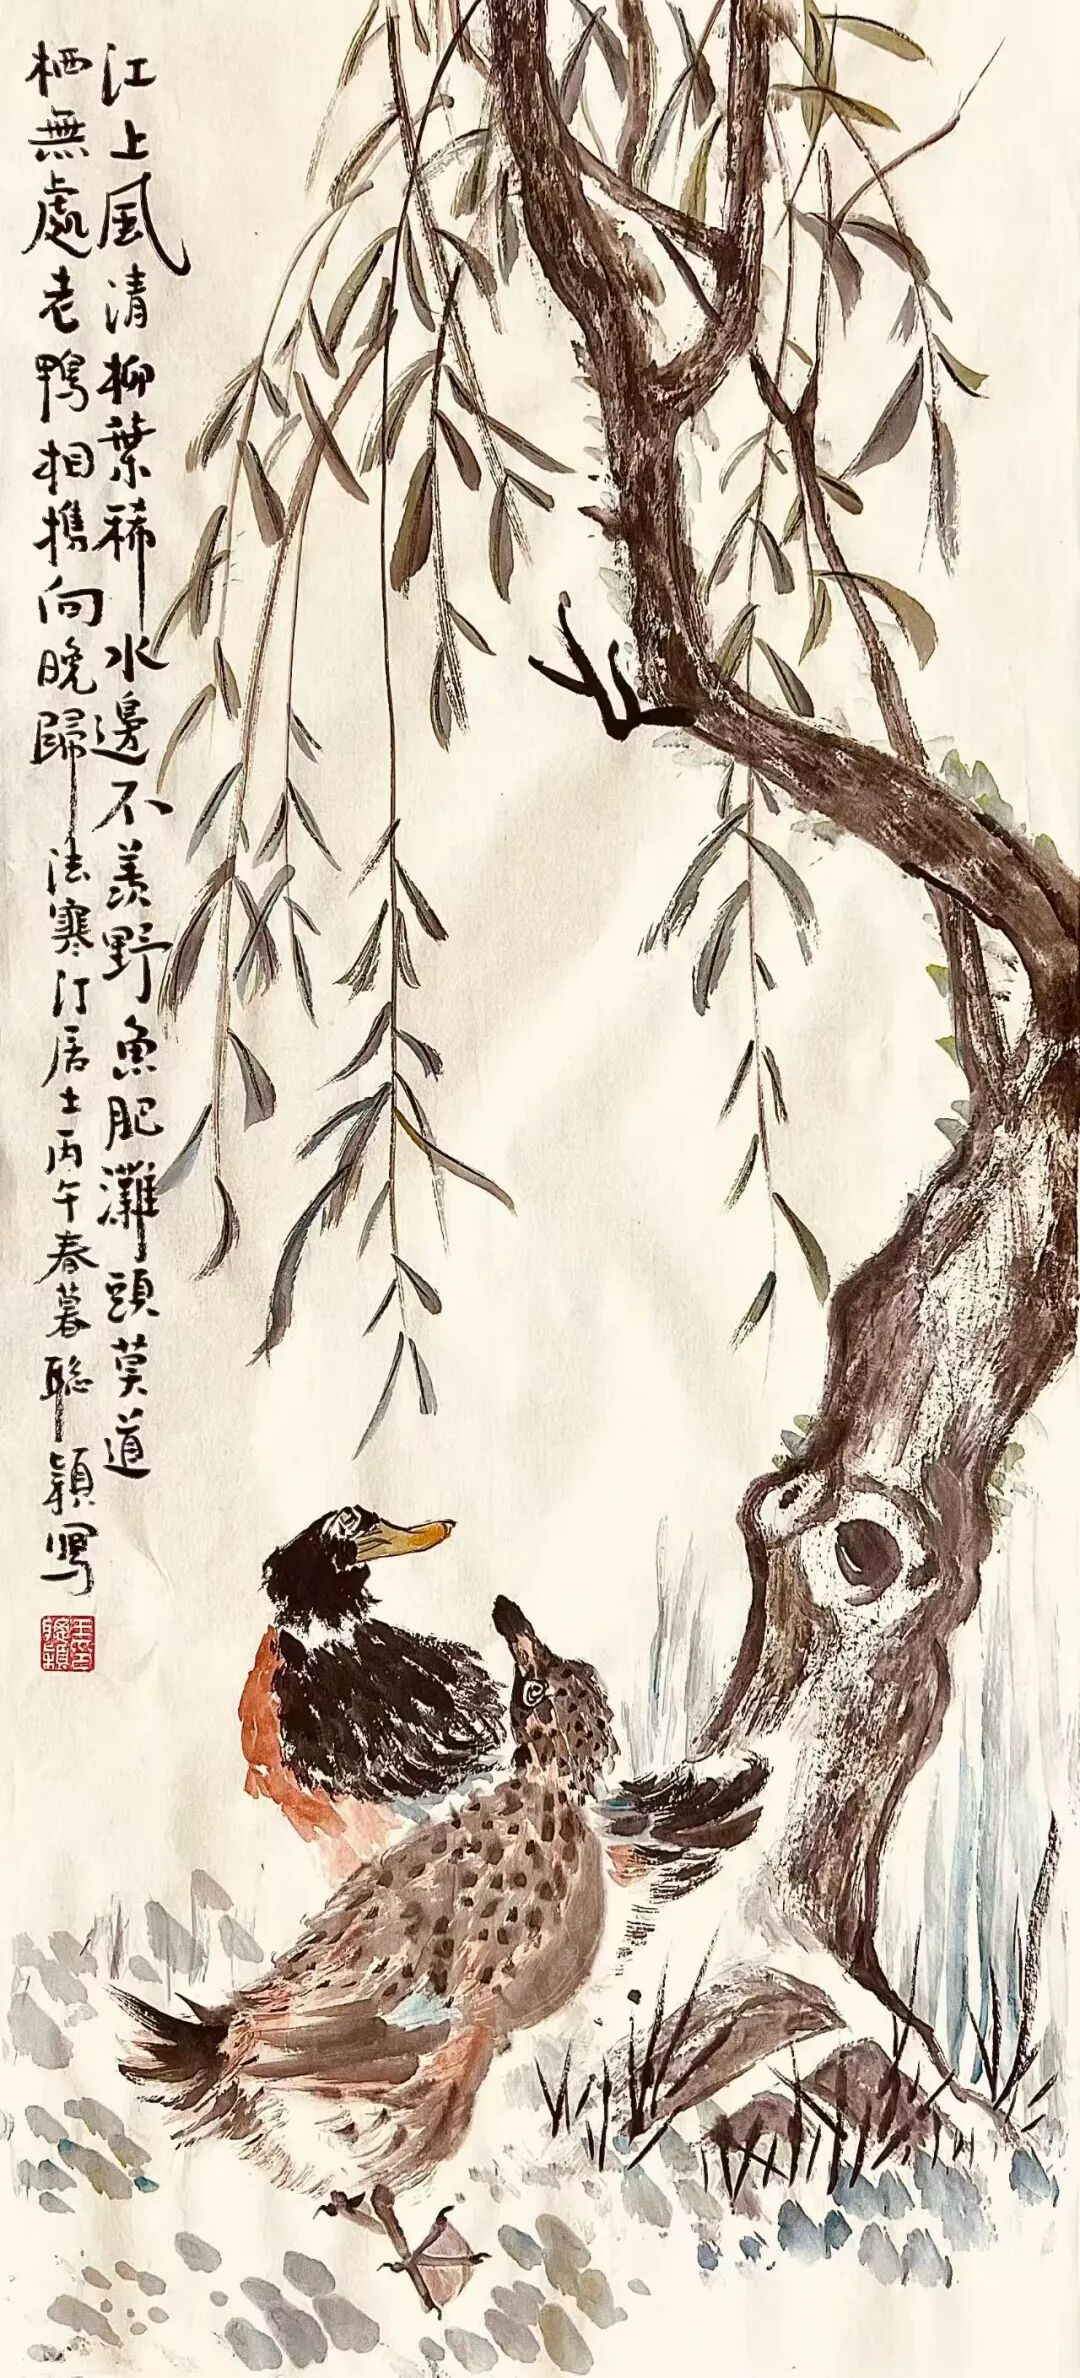 江上風清柳葉稀水邊不羨野魚肥灘頭莫道
栖無處老鴨相携向晚歸法寒汀居士丙午春暮聡穎寫